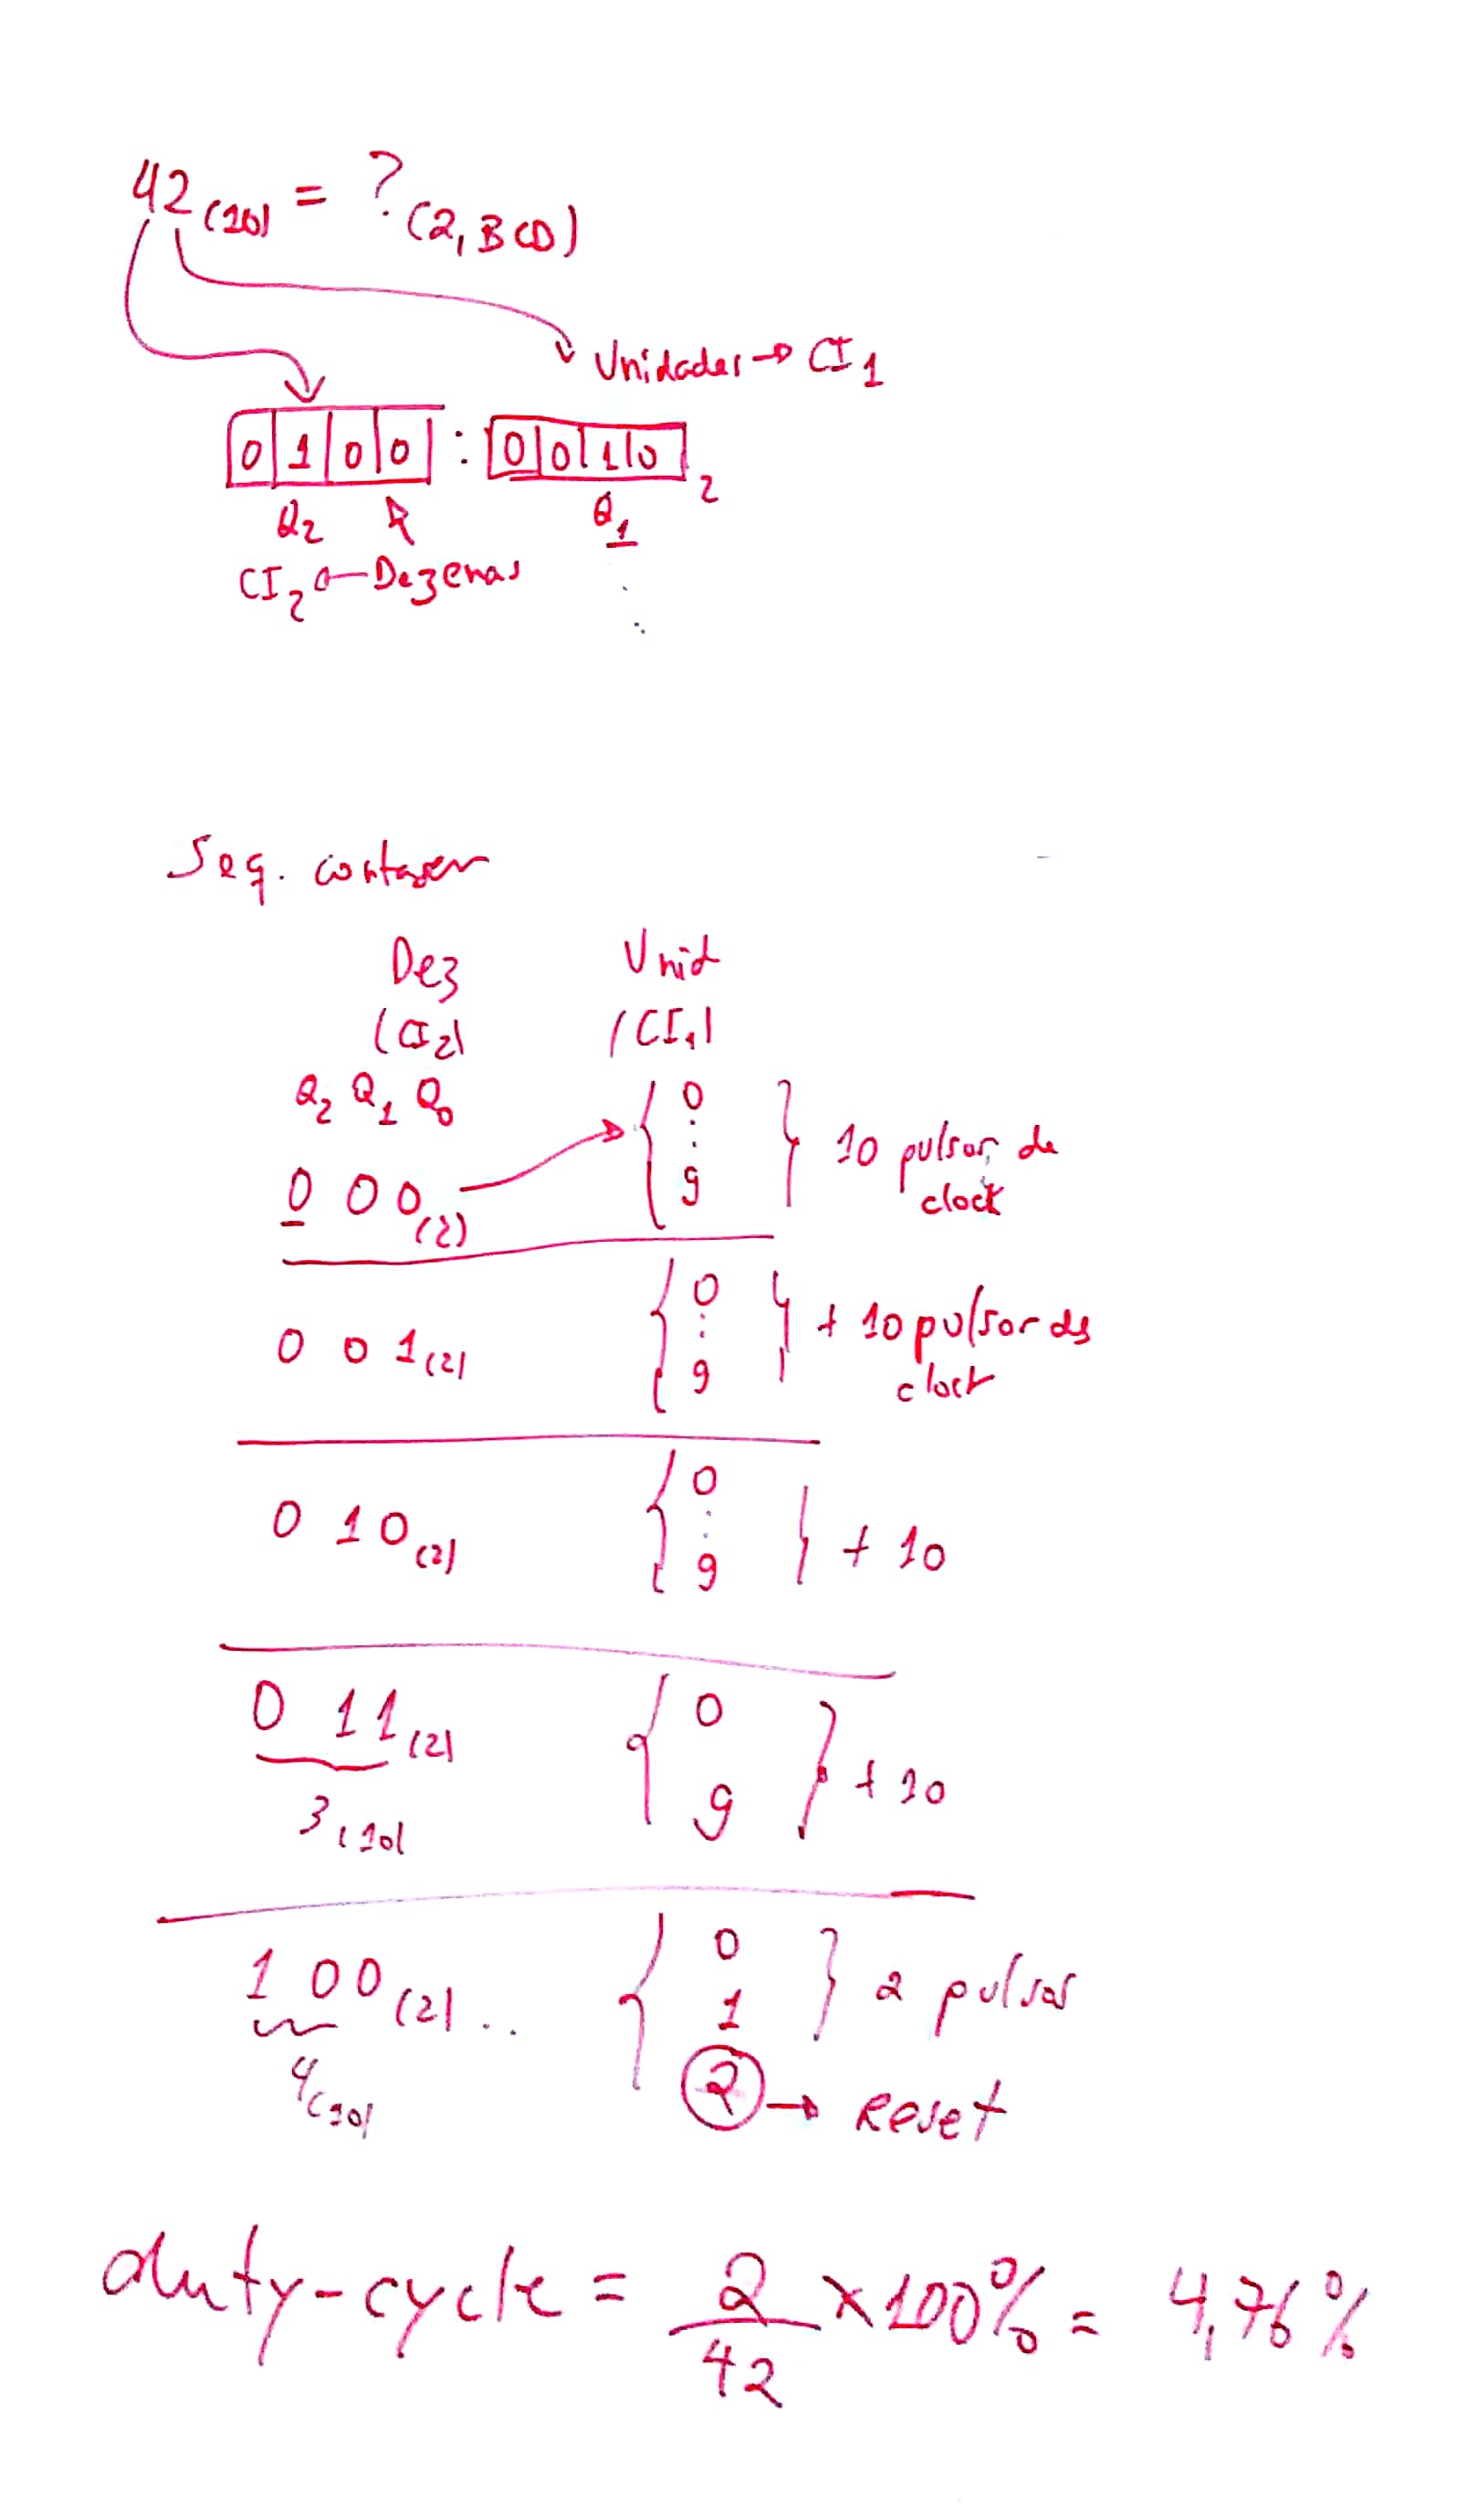 42(10) = ?(2, BCD)
Unidades → CI1
0 1 0 0 : 0 0 1 0 2
Q2 Q1
CI2 ← Dezenas
Seq. contagem
Dez Unid
(CI2) (CI1)
Q2 Q1 Q0
0
:
9
0 0 0(2)
10 pulsos de
clock
0
:
9
0 0 1(2)
+ 10 pulsos de
clock
0
:
9
0 1 0(2)
+ 10
0 1 1(2)
0
9
+ 10
3(10)
1 0 0(2)..
0
1
2 pulsos
4(10)
2 → Reset
duty-cycle = 2/42 x 100% = 4,76%